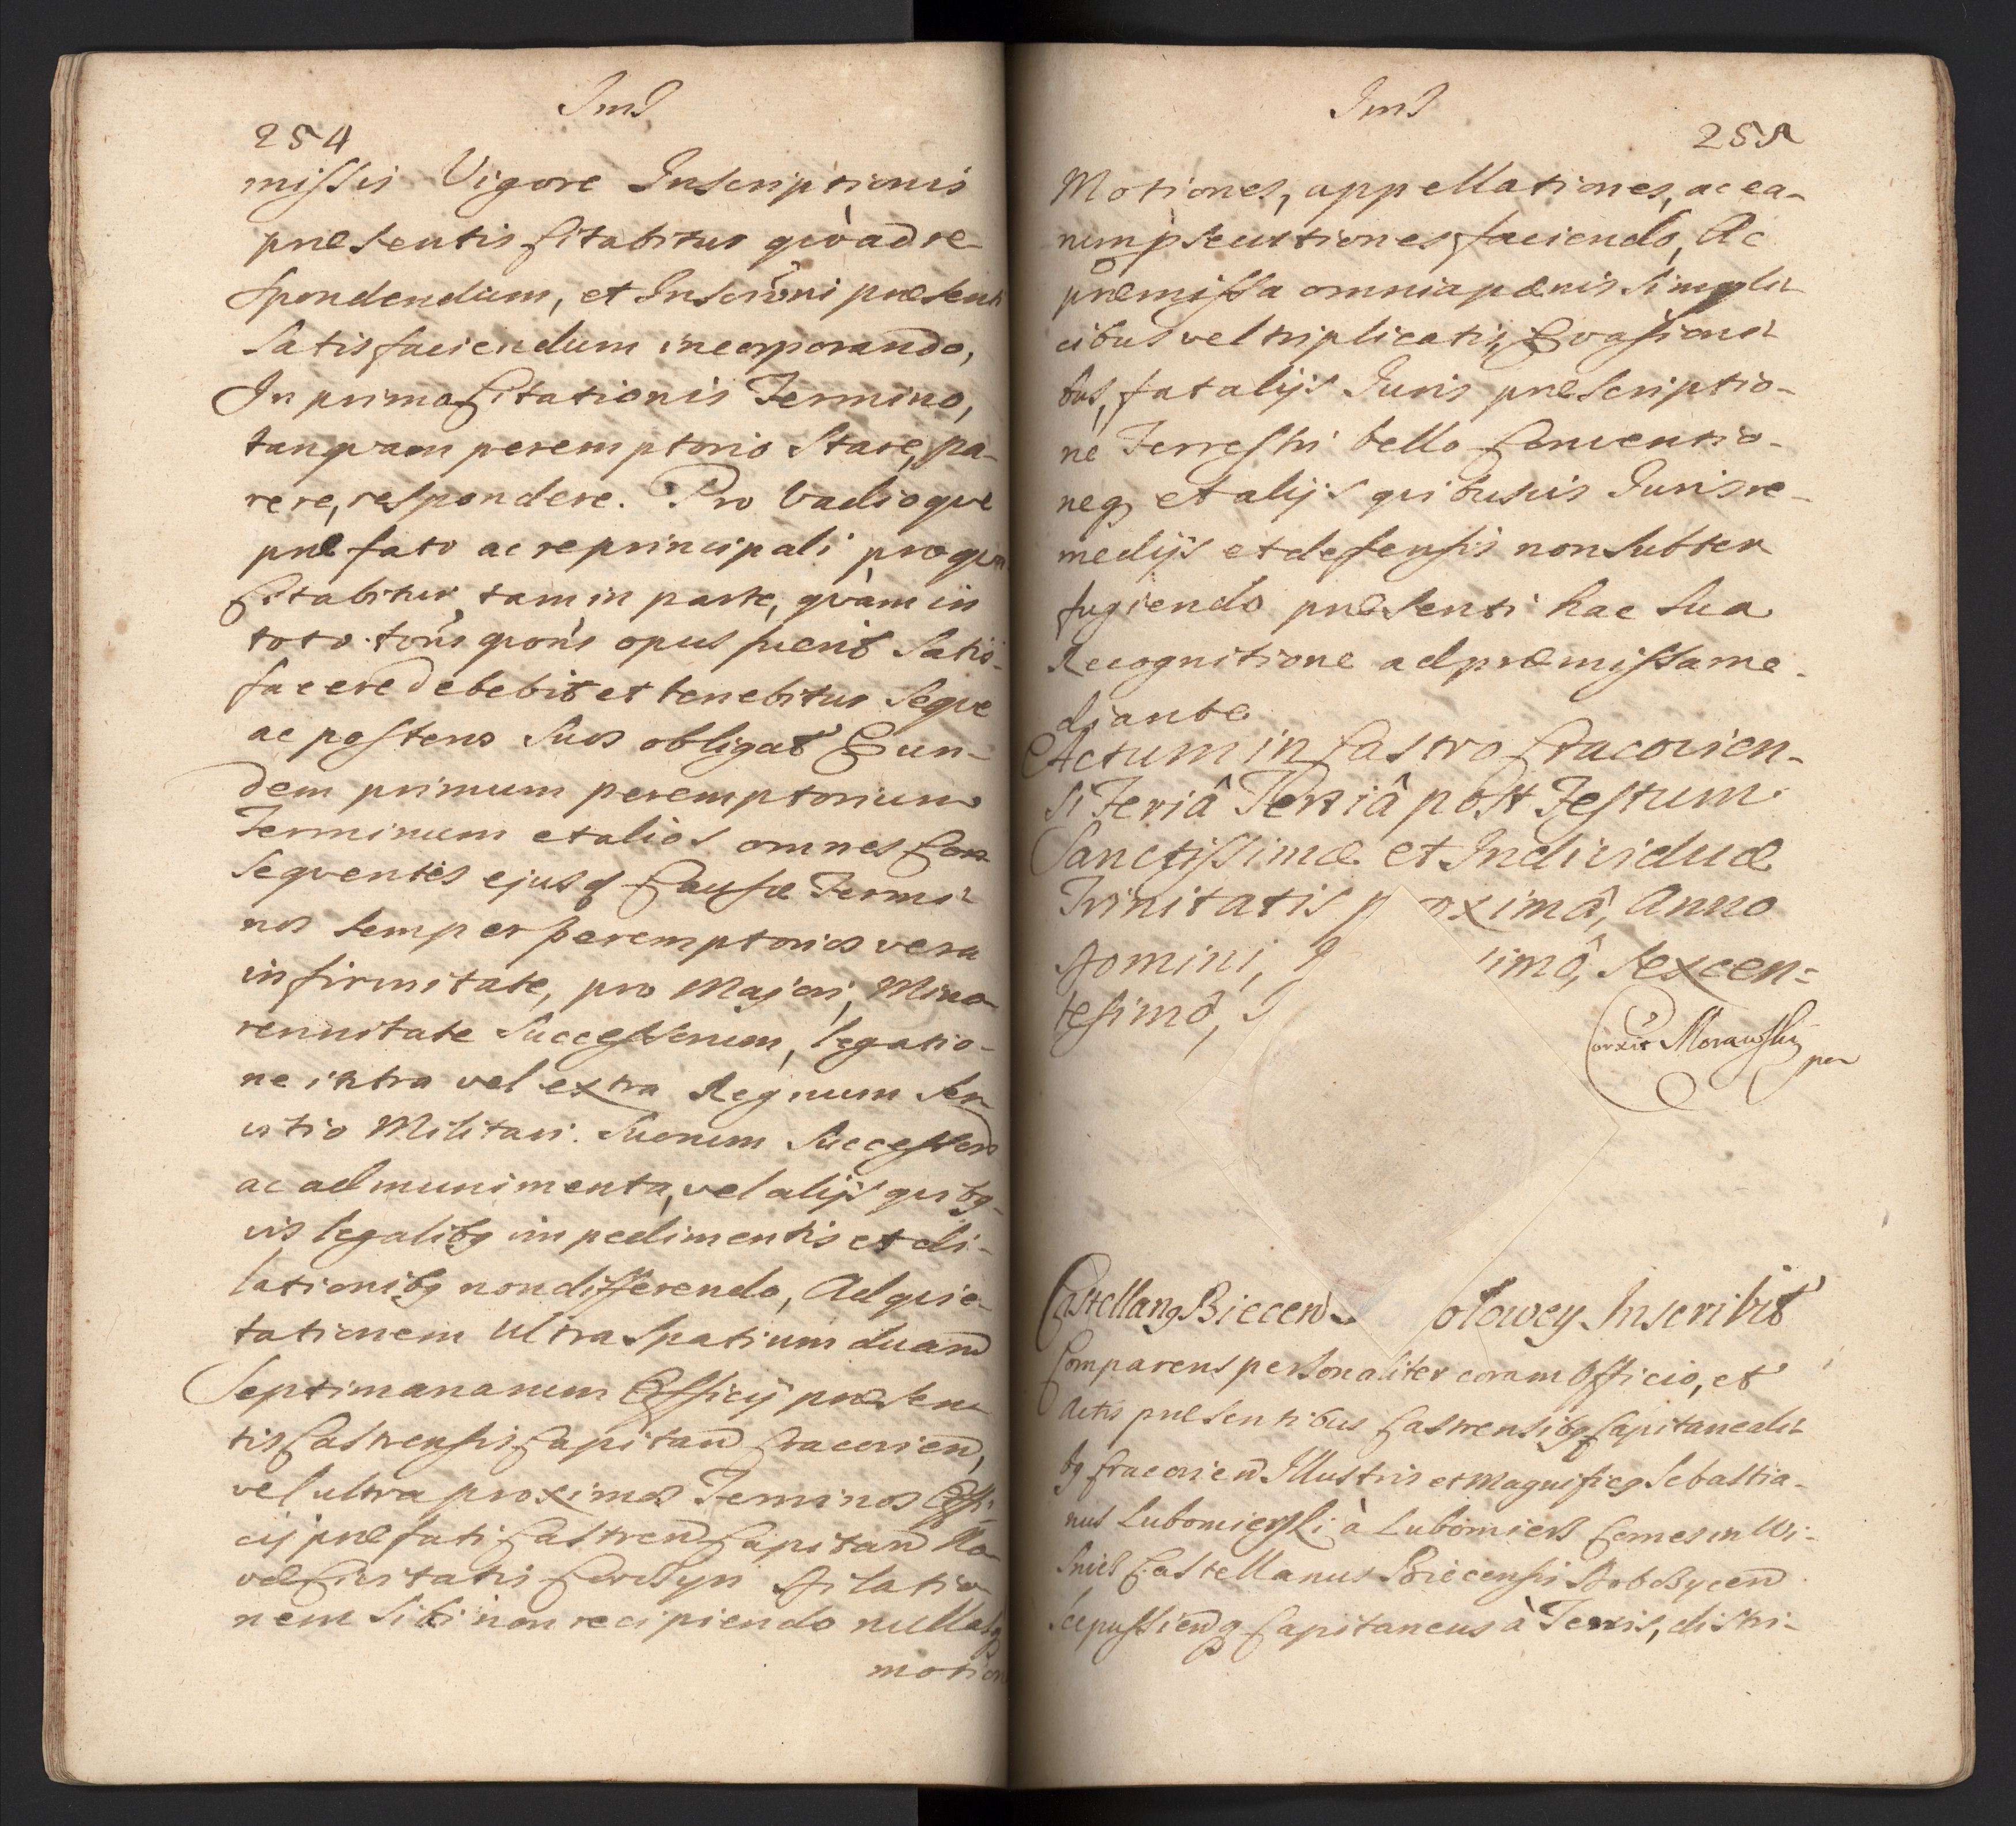 254
missis Vigore Inscriptionis
præsentis Citabitur qvò ad re-
spondendum, et Inscrōni præsenti
Satisfaciendum incorporando,
In primo Citationis Termino,
tanqvam peremptorio Stare, pa-
rere, respondere. Pro Vadioqve
præfato ac re principali pro qva
Citabitur, tam in parte, qvàm in
toto. toñs qvoñs opus fuerit Satis-
facere debebit et tenebitur Seqve
ac posteros Suos obligat Eun-
dem primum peremptorium
Terminum et alios omnes Con-
seqventes ejusd Causæ Termi-
nos Semper peremptorios vera
infirmitate, pro Majori, Mino-
rennitate Successorum, legatio-
ne intra vel extra Regnum Ser-
vitio Militari. Suorum Successoru
ac ad munimenta, vel alijs qvibq-
vis legalibq impedimentis et di-
lationibq non differendo, Ad qvie-
tationem Ultra Spatium duaru
Septimanarum Officij præsen-
tis Castrensis Capitan Cracovien,
vel ultra proximos Terminos Offi-
cij præfati Castren Capitan No-
væ Civitatis Corchyn dilatio-
nem Sibi non recipiendo nullasq
motion
255
Motiones, appellationes, ac ea-
rum pseutiones faciendo, Ac
præmissa omnia pænis Simpli-
cibus vel triplicatis, Evasioni-
bus, fatalijs Juris præscriptio-
ne Terrestri bello Conventio-
neq et alijs qvibusvis Juris re-
medijs et defensis non Subter
fugiendo præsenti hac Sua
Recognitione ad præmissa me-
djante
Actum in Castro Cracovien-
si Feriâ Tertiâ post Festum
Sanctissimæ et Individuæ
Trinitatis p oximâ, Anno
Domini, simô, Sexcen=
tesimô,
Corxit Morawski
Castellanq Biecen olowey Inscribit
Comparens personaliter coram Officio, et
Actis præsentibus Castrensibq Capitaneali-
bq Cracovien Illustris et Magnificq Sebastia-
nus Lubomierski à Lubomierz Comes in Wi-
snicz Castellanus Biecensis Dobczycen
Scepussienq Capitaneus à Terris, distri-